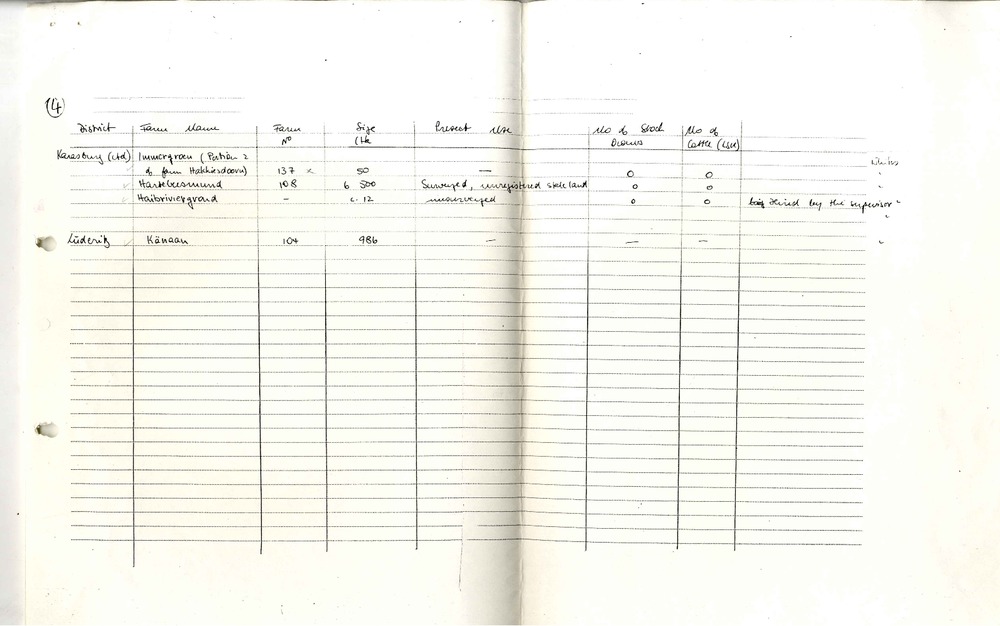 14
District Farm Name Farm Size Present Use No of Stock No of
No (Ha Owners Cattle (LSU)
Karasburg (ctd) Immergroen (Portion 2
of farm Hakkiesdoorn) 137 x 50 — 0 0 "
Hartebeesmund 108 6 500 Surveyed, unregistered state land 0 0 "
Haibriviergrond - c. 12 unsurveyed 0 0 being used by the supervisor "
"
Lüderitz Känaan 104 986 — — — "